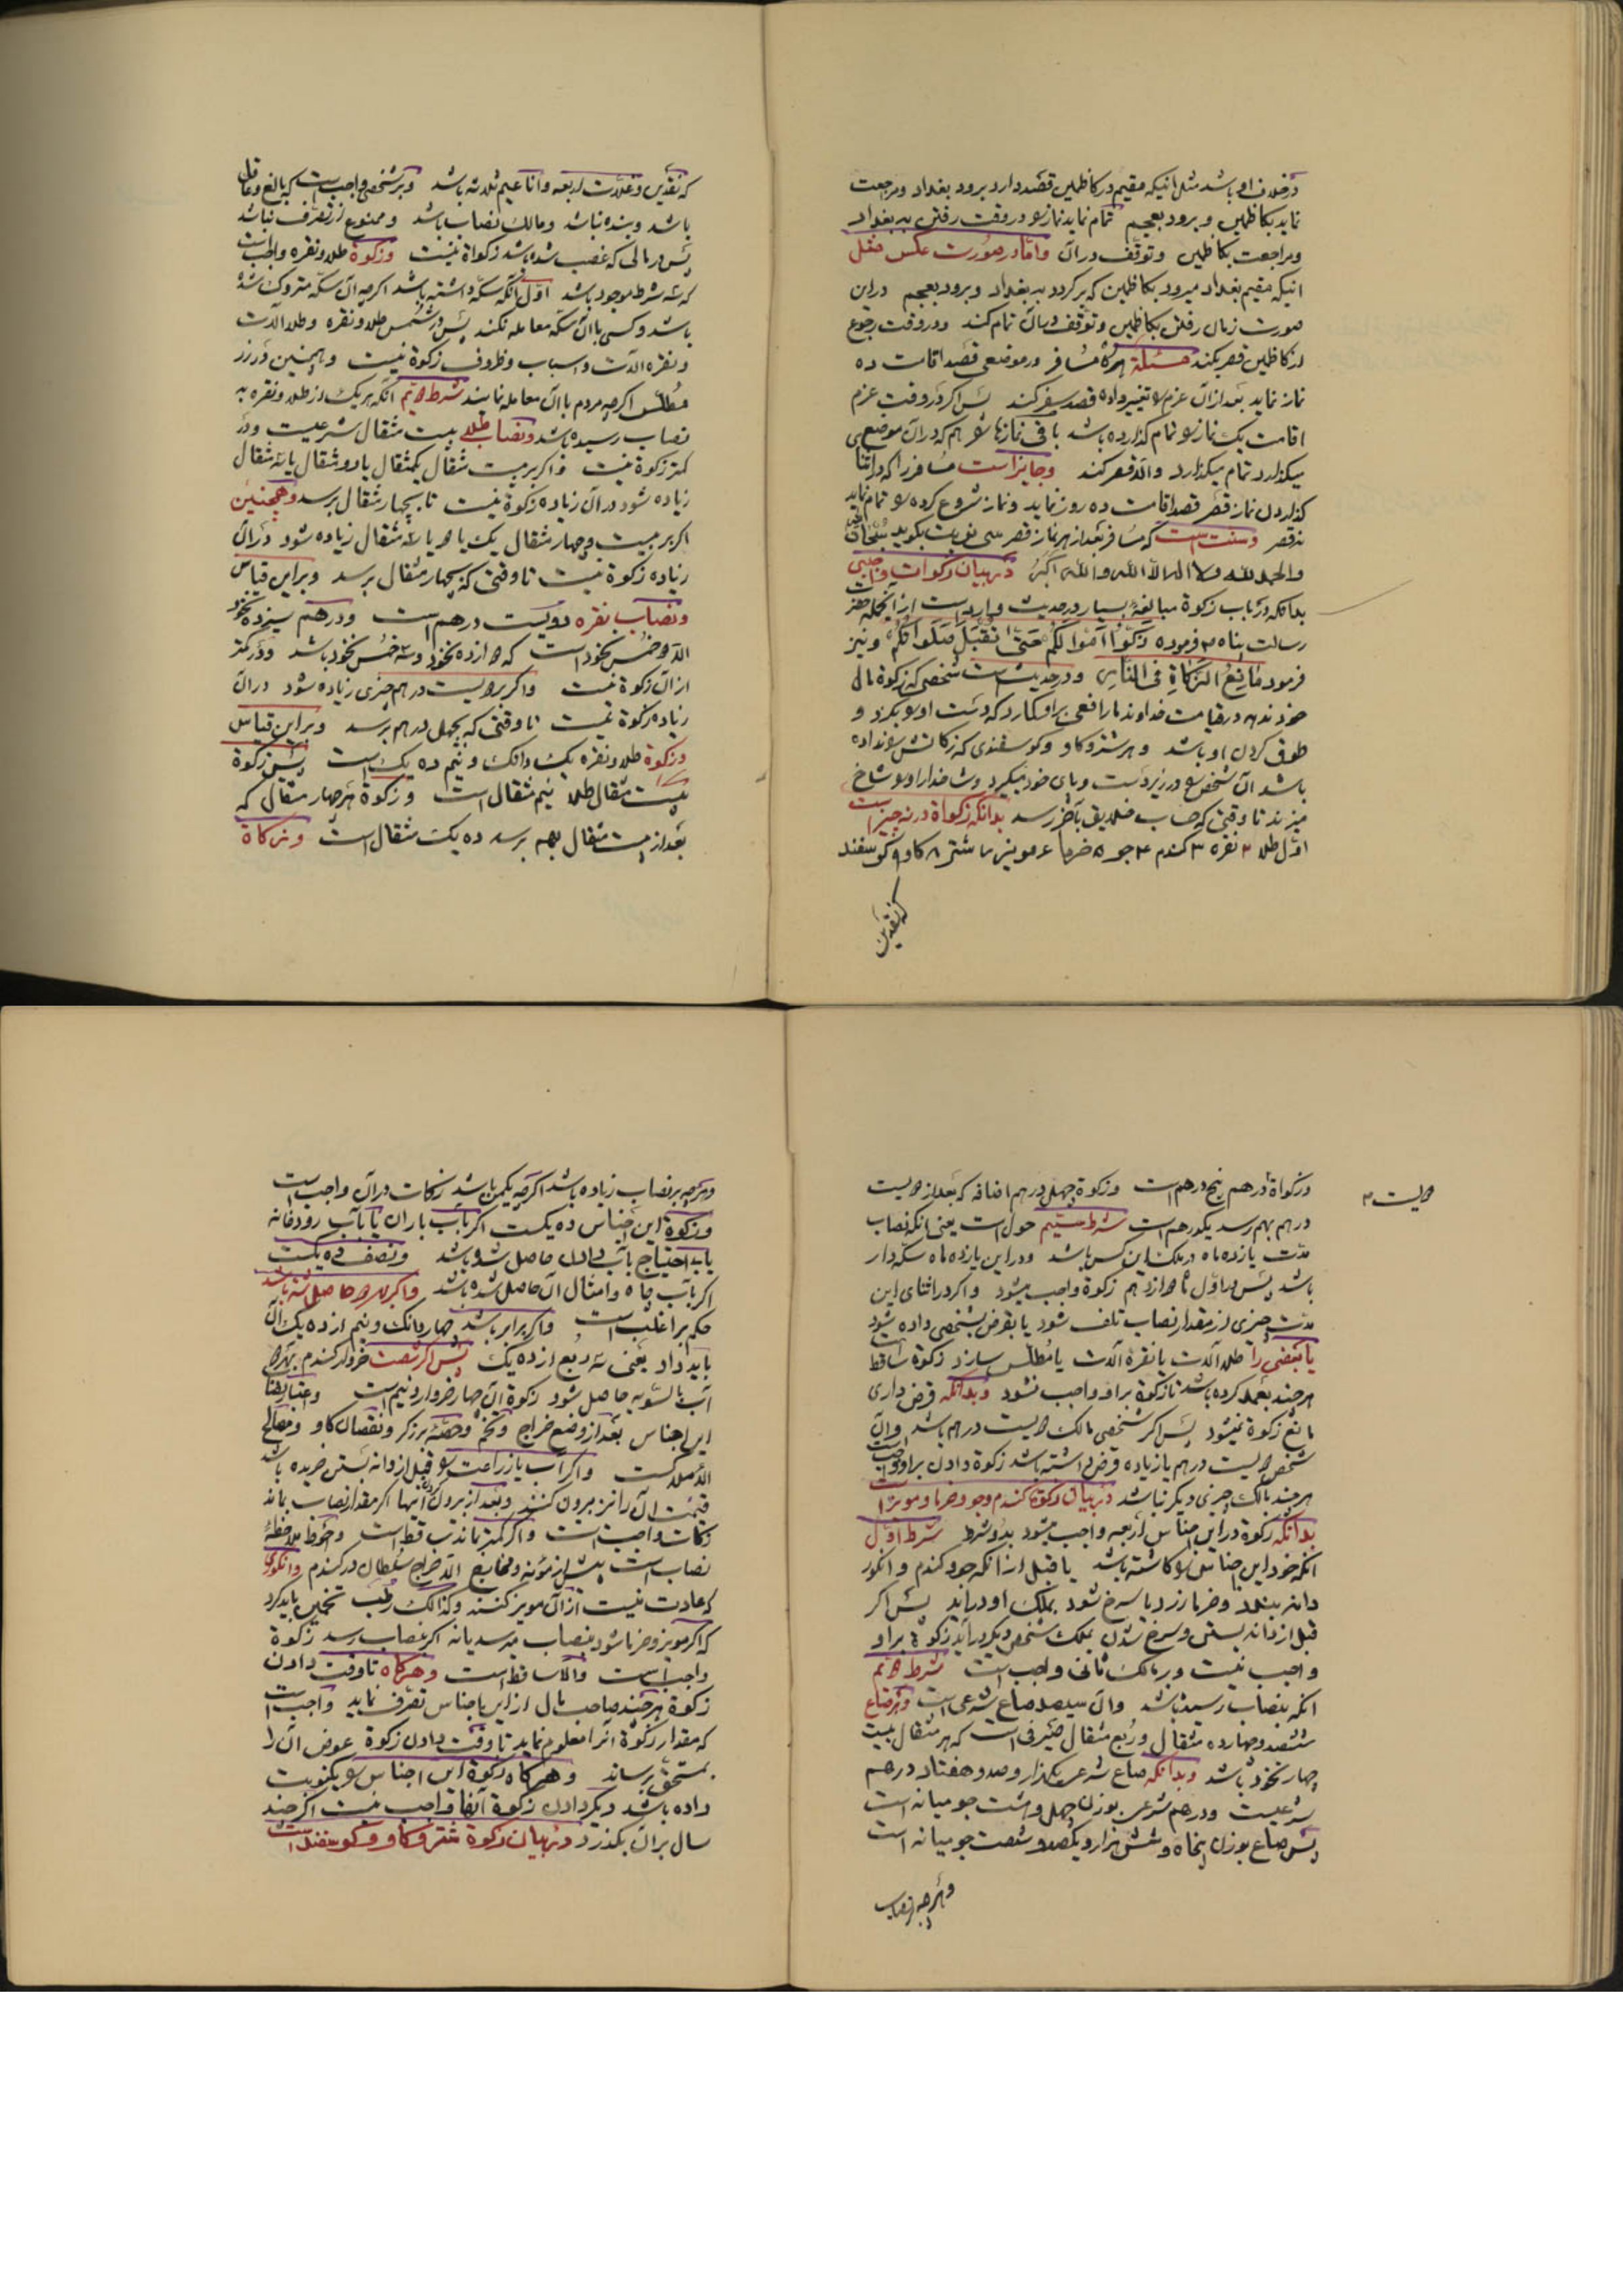 در خلاف او باشد مثل انیکه مقیم در کاظمین قصد دارد برود بغداد و مراجعت
نماید بکاظمین و برود بعجم تمام نماید نماز را در وقت رفتن به بغداد
و مراجعت بکاظمین و توقف در آن و امّا در صورت عکس مثل
انیکه مقیم بغداد میرود بکاظمین که برگردد به بغداد و برود بعجم در این
صورت زمان رفتن بکاظمین و توقف در آن تمام کند و در وقت رجوع
از کاظمین قصر بکند مسئلة هرگاه مسافر در موضعی قصد اقامت ده
نماز نماید بعد از آن عزم را تغییر داده قصد سفر کند پس اگر در وقت عزم
اقامت یک نماز را تمام گذارده باشد باقی نمازها را هم که در آن موضع
میگذارد تمام میگذارد و الّا قصر کند و جایز است مسافر را که در اثنا
گذاردن نماز قصر قصد اقامت ده روز نماید و نماز شروع کرده را تمام نماید
نه قصر و سنت است که مسافر بعد از هر نماز قصر سی نوبت بگوید سُبْحانَ الله
والحمد لله ولا اله الّا الله والله اکبر در بیان زکوات واجبی
بدانکه در باب زکوة مبالغهٔ بسیار در حدیث وارد است از آنجمله حضرت
رسالت پناه ص فرموده زَکّوا اَمْوالَکُم حَتّی تُقْبَلَ صَلَواتُکُم و نیز
فرمود مانِعُ الزَّکاةِ فی النّارِ و در حدیث است شخصی که زکوة مال
خود ندهد در قیامت خداوند مار افعی بر او گمارد که دست او را بگزد و
طوق گردن او باشد و هر شتر و گاو و گوسفندی که زکاتش را نداده
باشد آن شخص را در زیر دست و پای خود میگیرد و شاخدار او را شاخ
میزند تا وقتی که حساب خلایق بآخر رسد بدانکه زکواة در نه چیز است
اوّل طلا ۲ نقره ۳ گندم ۴ جو ۵ خرما ۶ مویز ۷ شتر ۸ گاو ۹ گوسفند
که نقدین
که نقدین و غلّات اربعه و انعام ثلاثه باشد و بر شخصی واجب است که بالغ و عاقل
باشد و بنده نباشد و مالک نصاب باشد و ممنوع از تصرّف نباشد
پس در مالی که غصب شده باشد زکواة نیست و زکوة طلا و نقره واجب است
که سه شرط موجود باشد اوّل آنکه سکّه داشته باشد اگرچه آن سکّه متروک شده
باشد و کسی باآن سکّه معامله نکند پس در شمس طلا و نقره و طلا آلات
و نقره آلات و اسباب و ظروف زکوة نیست و همچنین در زر
مطلّس اگرچه مردم باآن معامله نمایند شرط دویّم آنکه هر یک از طلا و نقره به
نصاب رسیده باشد و نصاب طلا بیست مثقال شرعیست و در
کمتر زکوة نیست و اگر بر بیست مثقال یکمثقال یا دو مثقال یا سه مثقال
زیاده شود در آن زیاده زکوة نیست تا بچهار مثقال برسد و همچنین
اگر بر بیست و چهار مثقال یک یا دو یا سه مثقال زیاده شود در آن
زیاده زکوة نیست تا وقتی که بچهار مثقال برسد و براین قیاس
و نصاب نقره دویست درهم است و درهم سیزده نخود
الّا دو خُمس نخود است که دوازده نخود و سه خُمس نخود باشد و در کمتر
از آن زکوة نیست و اگر بر دویست درهم چیزی زیاده شود در آن
زیاده زکوة نیست تا وقتی که بچهل درهم برسد و براین قیاس
و زکوة طلا و نقره یک دانک و نیم ده یک است پس زکوة
بیست مثقال طلا نیم مثقال است و زکوة هر چهار مثقال که
بعد از بیست مثقال بهم برسد ده یک مثقال است و زکاة
دویست ۲
و زکواة درهم پنج درهم است و زکوة چهل درهم اضافه که بعد از دویست
درهم بهم رسد یکدرهم است شرط سیّم حول است یعنی آنکه نصاب
مدّت یازده ماه در ملک این کس باشد و در این یازده ماه سکّه دار
باشد پس در اوّل ماه دوازدهم زکوة واجب میشود و اگر در اثنای این
مدّت چیزی از مقدار نصاب تلف شود یا بقرض بشخصی داده شود
یا بعضی را طلا آلات یا نقره آلات یا مطلّس سازد زکوة ساقط است
هرچند بعمد کرده باشد تا زکوة بر او واجب نشود و بدانکه قرض داری
مانع زکوة نمیشود پس اگر شخصی مالک دویست درهم باشد و آن
شخص دویست درهم یا زیاده قرض داشته باشد زکوة دادن بر او واجب است
هرچند مالک چیزی دیگر نباشد در بیان زکوة گندم و جو و خرما و مویز است
بدانکه زکوة در این اجناس اربعه واجب میشود بدو شرط شرط اوّل
آنکه خود این اجناس را کاشته باشد یا قبل از آنکه جو و گندم و انگور
دانه ببندد و خرما زرد یا سرخ شود بملک او درآید پس اگر
قبل از دانه بستن و سرخ شدن بملک شخص دیگر درآید زکوة بر او
واجب نیست و بر مالک ثانی واجب است شرط دویّم
آنکه بنصاب رسیده باشد و آن سیصد صاع شرعی است و هر صاع
ششصد و چهارده مثقال و ربع مثقال صیرفی است که هر مثقال بیست
چهار نخود باشد و بدانکه صاع شرعی یکهزار و صد و هفتاد درهم
شرعیست و درهم شرعی بوزن چهل و هشت جو میانه است
پس صاع بوزن پنجاه و شش هزار و یکصد و شصت جو میانه است
و هرچه بر نصاب
و هرچه بر نصاب زیاده باشد اگرچه یکمن باشد زکات در آن واجب است
و زکوة این اجناس ده یکست اگر بآب باران یا بآب رودخانه
یا بی احتیاج بآب دادن حاصل شده باشد و نصف ده یکست
اگر بآب چاه و امثال آن حاصل شده باشد و اگر بهر دو حاصل شده باشد
حکم بر اغلب است و اگر برابر باشد چهار دانک و نیم از ده یک آن
باید داد یعنی سه ربع از ده یک پس اگر شصت خروار گندم بهر دو
آب بالسّویه حاصل شود زکوة آن چهار خروار و نیم است و اعتبار نصاب
این اجناس بعد از وضع خراج و تخم و حصّهٔ برزگر و نقصان گاو و مصالح
الاملاکست و اگر آب یا زراعت را قبل از دانه بستن خریده باشد
قیمت آن را نیز بیرون کنند و بعد از بیرون کردن اینها اگر مقدار نصاب بماند
زکات واجب است و اگر کمتر بماند ساقط است و احوط ملاحظهٔ
نصاب است پیش از مؤنه و مخارج الّا خراج سُلطان در گندم و انگوری
که عادت نیست از آن مویز کنند و کذالک رطب تخمین باید کرد
که اگر مویز و خرما شود بنصاب میرسد یا نه اگر بنصاب رسد زکوة
واجب است و الّا ساقط است و هرگاه تا وقت دادن
زکوة هرچند صاحب مال از این اجناس تصرّف نماید واجب است
که مقدار زکوة آنرا معلوم نماید تا وقت دادن زکوة عوض آن را
بمستحق برساند و هرگاه زکوة این اجناس را یکنوبت
داده باشد دیگر دادن زکوة آنها واجب نیست اگر چند
سال بر آن بگذرد در بیان زکوة شتر و گاو و گوسفند است